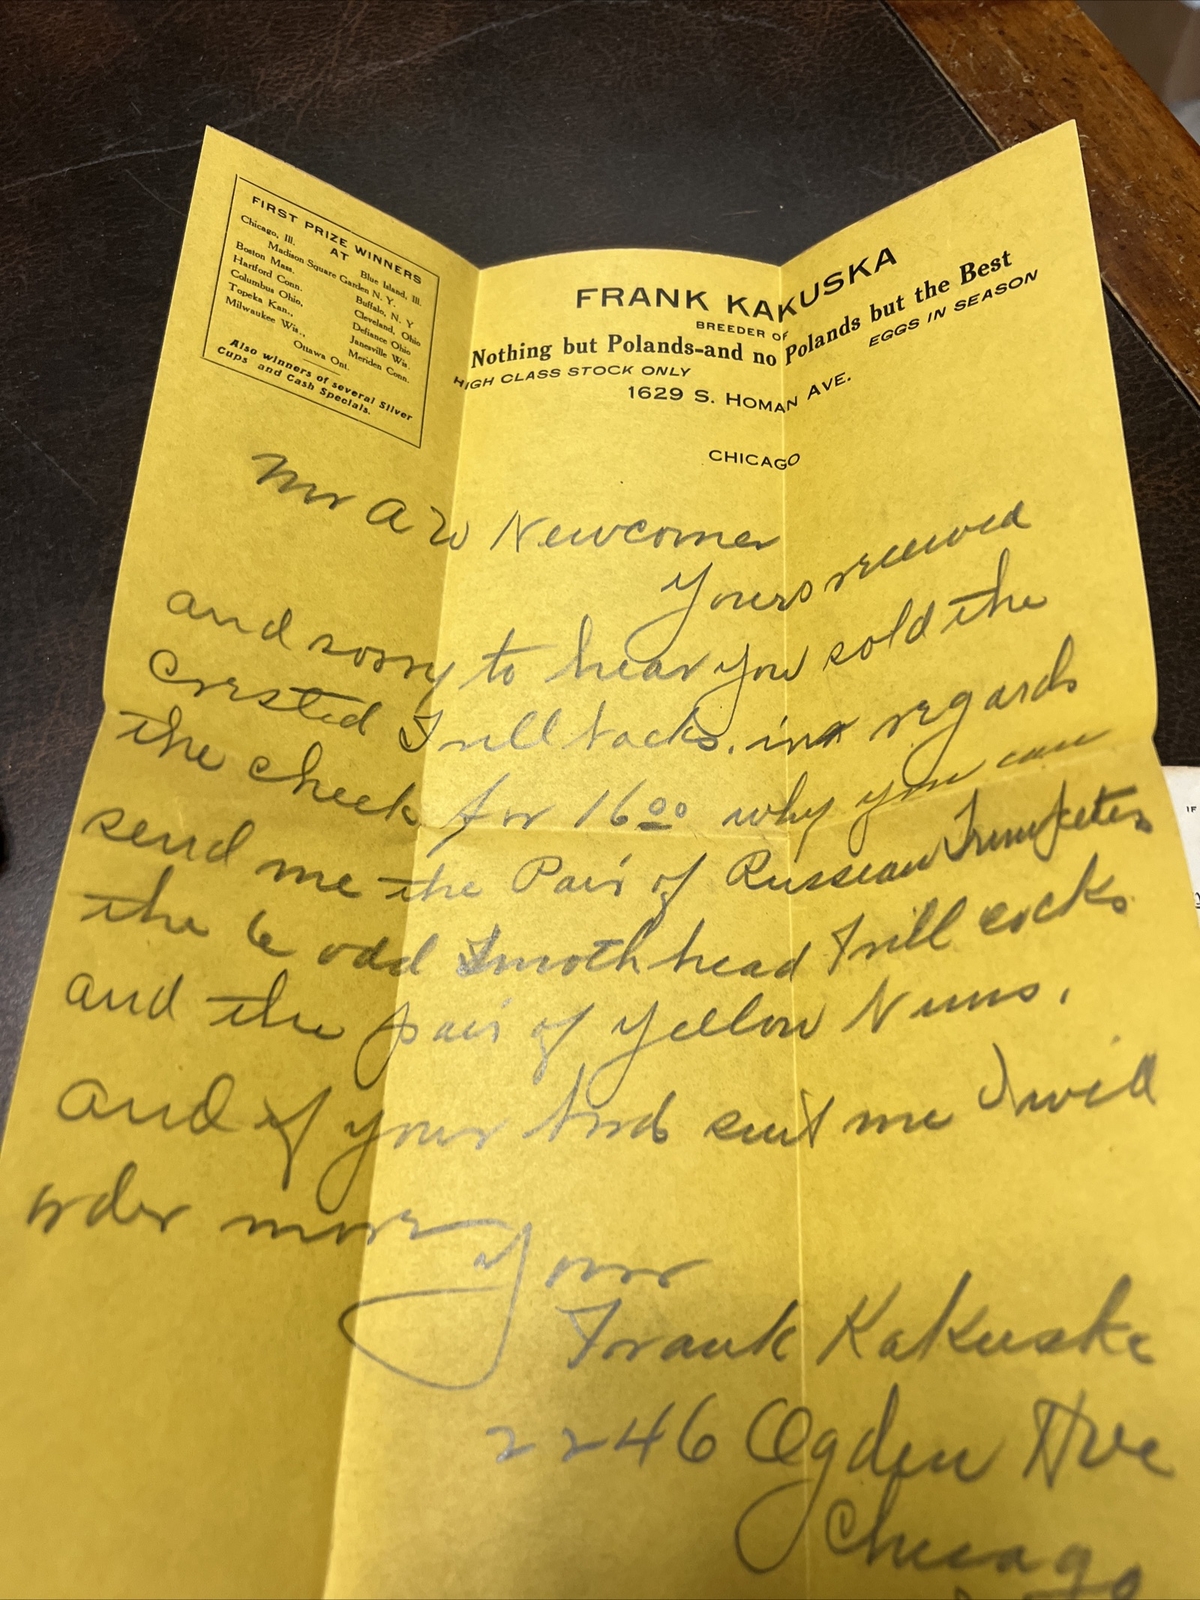 FIRST PRIZE WINNERS
AT
Chicago, Ill. Blue Island, Ill.
Madison Square Garden N. Y.
Boston Mass. Buffalo, N. Y
Hartford Conn. Cleveland, Ohio
Columbus Ohio, Defiance Ohio
Topeka Kan., Janesville Wis.
Milwaukee Wis., Meriden Conn.
Ottawa Ont.
Also winners of several Silver
Cups and Cash Specials.
FRANK KAKUSKA
BREEDER OF
Nothing but Polands-and no Polands but the Best
HIGH CLASS STOCK ONLY EGGS IN SEASON
1629 S. HOMAN AVE.
CHICAGO
Mr A W Newcomer
Yours received
and sorry to hear you sold the
Crested Frill backs. in regards
the check for 16 00 why you can
send me the Pair of Russian Trumpeters
the 6 odd Smoth head Frill cocks
and the pair of Yellow Nuns.
and if your birds suit me I will
order more
Your
Frank Kakuska
2246 Ogden Ave
Chicago
IF